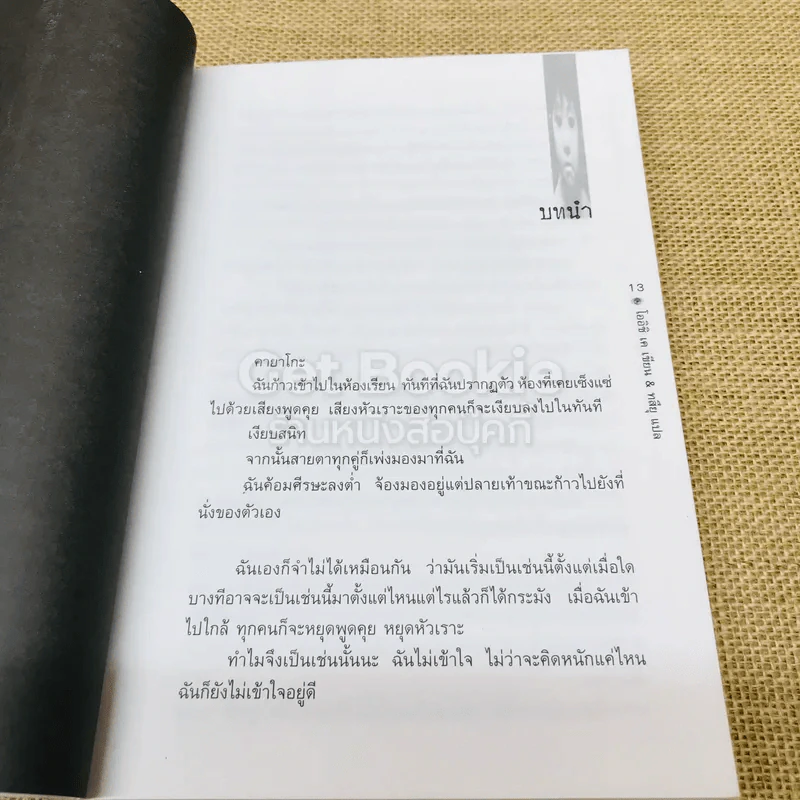 บทนำ
13
โออิชิ เค เขียน & ทสึยุ แปล
คายาโกะ
ฉันก้าวเข้าไปในห้องเรียน ทันทีที่ฉันปรากฏตัว ห้องที่เคยเซ็งแซ่
ไปด้วยเสียงพูดคุย เสียงหัวเราะของทุกคนก็จะเงียบลงไปในทันที
เงียบสนิท
จากนั้นสายตาทุกคู่ก็เพ่งมองมาที่ฉัน
ฉันค้อมศีรษะลงต่ำ จ้องมองอยู่แต่ปลายเท้าขณะก้าวไปยังที่
นั่งของตัวเอง
ฉันเองก็จำไม่ได้เหมือนกัน ว่ามันเริ่มเป็นเช่นนี้ตั้งแต่เมื่อใด
บางทีอาจจะเป็นเช่นนี้มาตั้งแต่ไหนแต่ไรแล้วก็ได้กระมัง เมื่อฉันเข้า
ไปใกล้ ทุกคนก็จะหยุดพูดคุย หยุดหัวเราะ
ทำไมจึงเป็นเช่นนั้นนะ ฉันไม่เข้าใจ ไม่ว่าจะคิดหนักแค่ไหน
ฉันก็ยังไม่เข้าใจอยู่ดี
Get Bookie
ร้านหนังสือบุคกี้